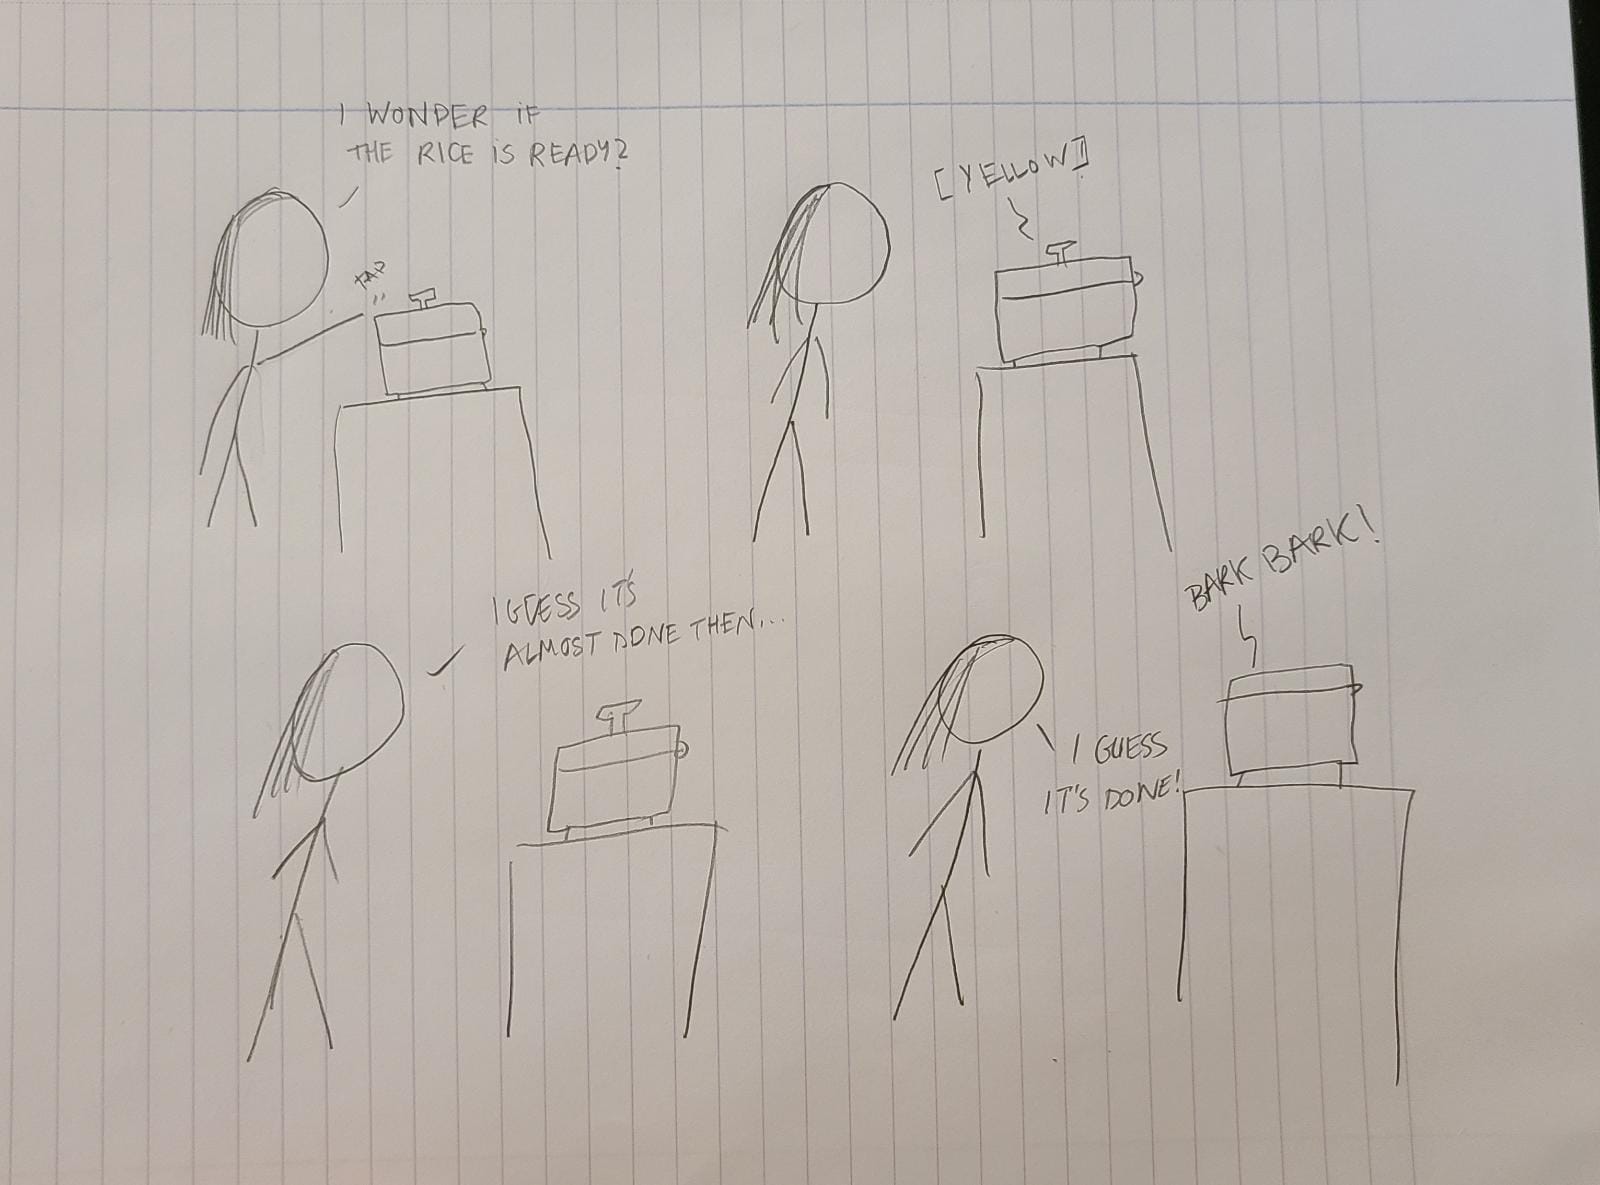 I WONDER IF
THE RICE IS READY?
TAP
[YELLOW]
I GUESS IT'S
ALMOST DONE THEN...
BARK BARK!
I GUESS
IT'S DONE!